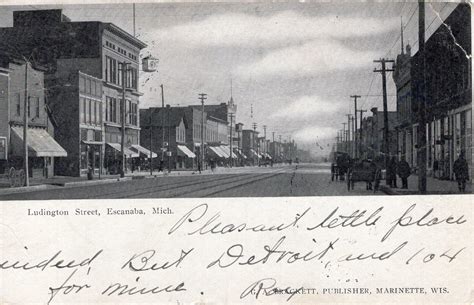 Ludington Street, Escanaba, Mich.
Pleasant little place
indeed, But Detroit, and 104
for mine. Roy
G. A. BRACKETT, PUBLISHER, MARINETTE, WIS.